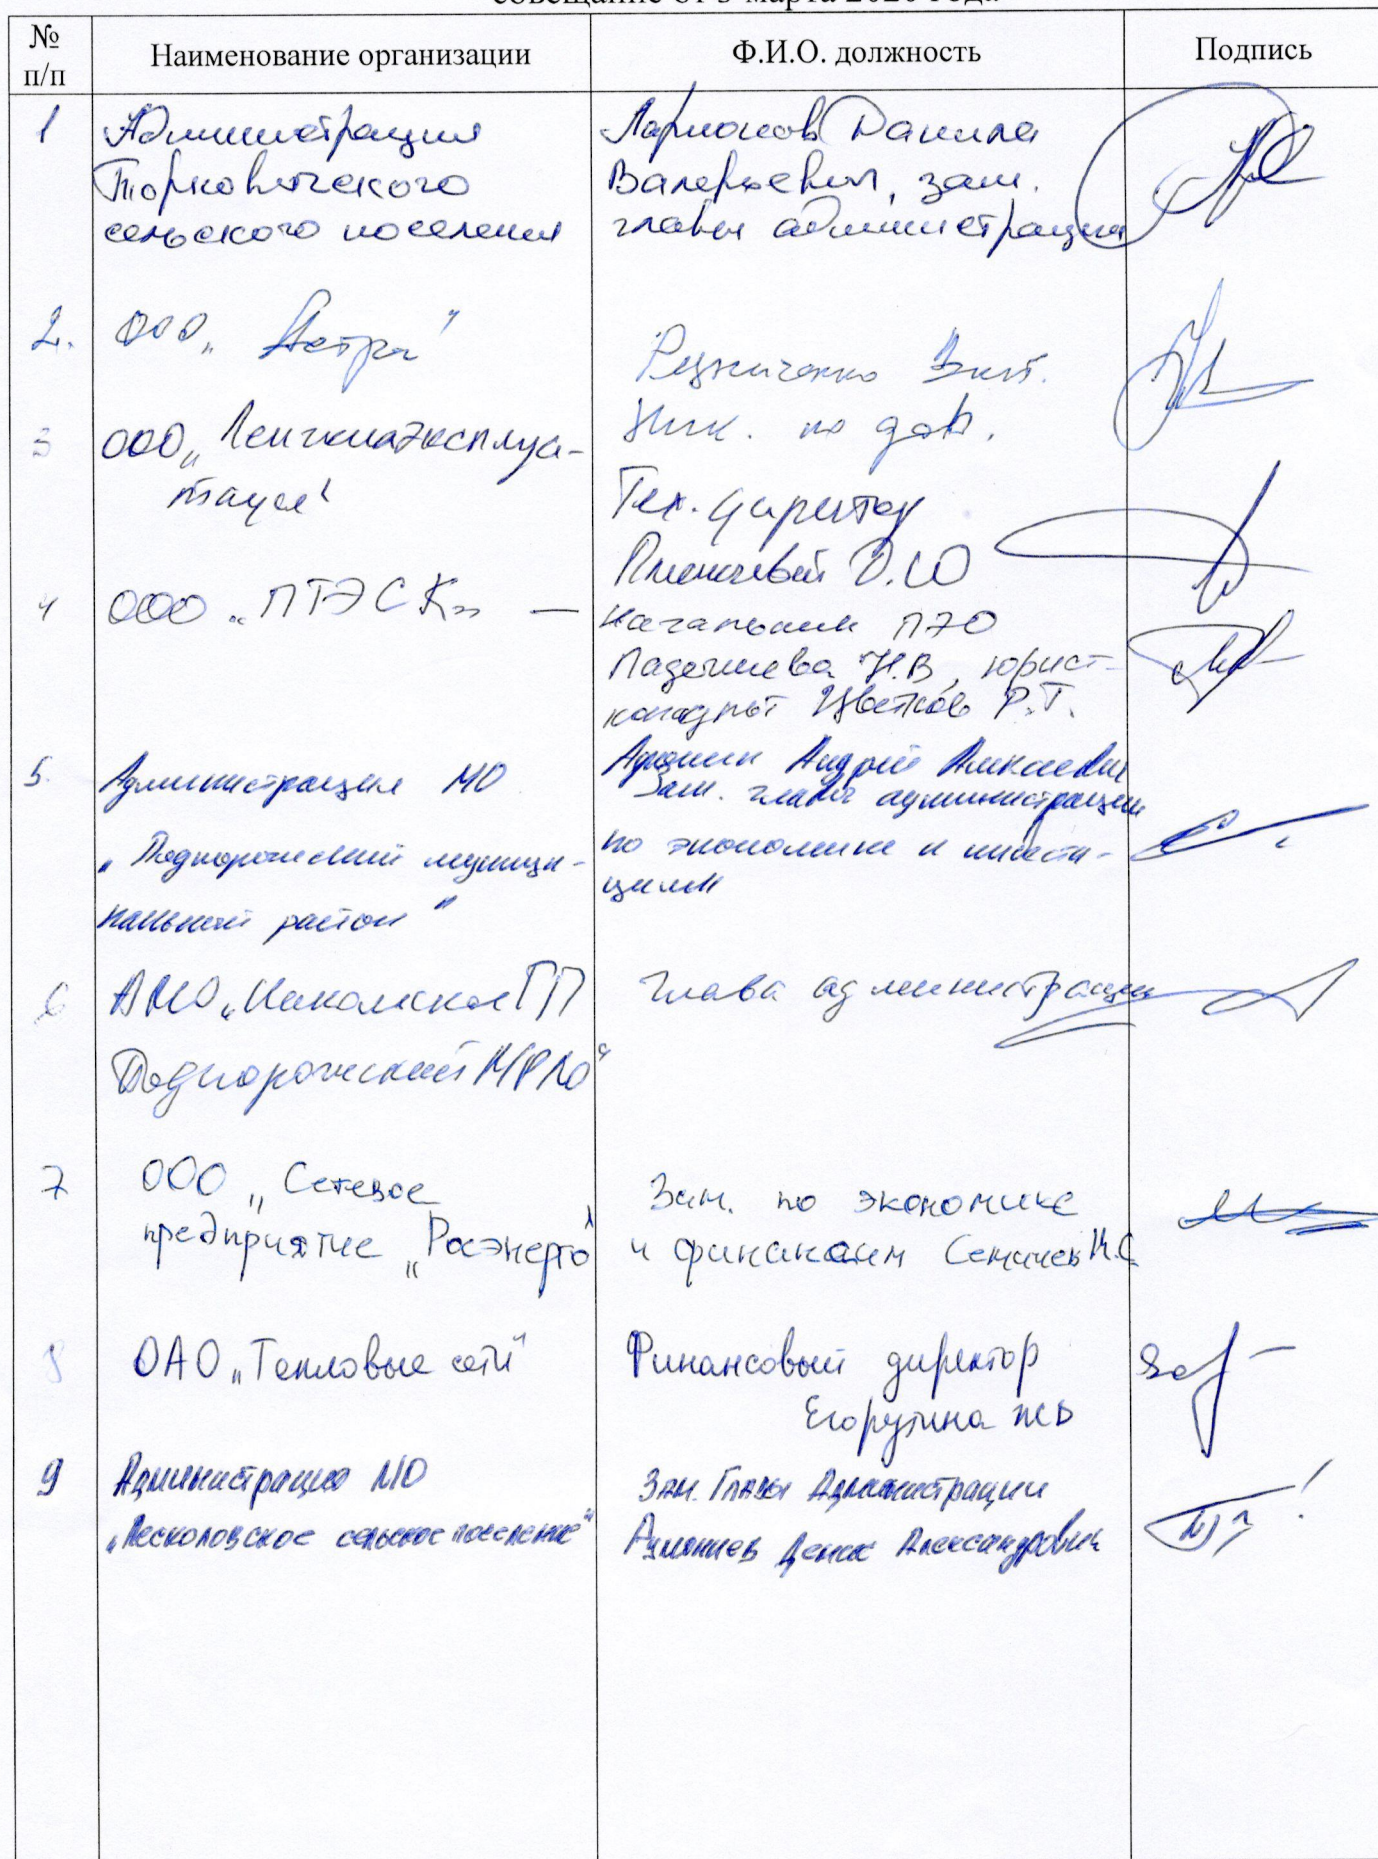 совещание от 5 марта 2020 года
№ п/п
Наименование организации
Ф.И.О. должность
Подпись
1
Администрация
Торковичского
сельского поселения
Ларионов Данила
Валерьевич, зам.
главы администрации
2.
ООО „Астра"
Резниченко Викт.
Ник. по дов.
3
ООО „Ленжилэксплуа-
тация"
Тех. директор
Д.Ю
4
ООО „ПТЭСК» —
Начальник ПЭО
Н.В, юрист-
Цветков Р.Т.
5.
Администрация МО
„Подпорожский муници-
пальный район"
Андрей Алексеевич
Зам. главы администрации
по экономике и инвести-
циям
6
АМО „Никольское ГП
Подпорожский МР ЛО"
Глава администрации
7
ООО „Сетевое
предприятие „Росэнерго"
Зам. по экономике
и финансам
8
ОАО „Тепловые сети"
Финансовый директор
9
Администрация МО
„Лесколовское сельское поселение"
Зам. Главы Администрации
Денис Александрович